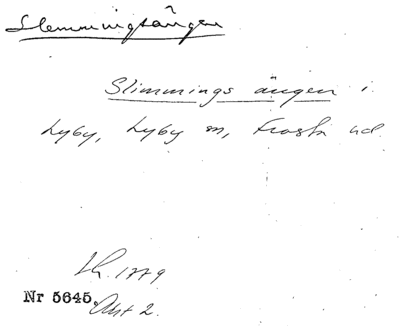 Slemmingsängen
Slimmings ängen i
Lyby, Lyby sn, Frosta hd
LSk. 1779
Nr 5645. Akt 2.